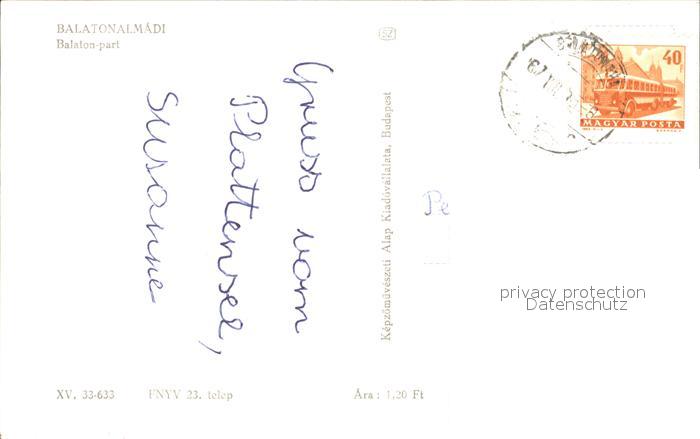 BALATONALMÁDI
Balaton-part
SZ
40f
MAGYAR POSTA
Gruss vom
Plattensee,
Susanne
Képzőművészeti Alap Kiadóvállalata, Budapest
Pe
privacy protection
Datenschutz
XV, 33-633 FNYV 23. telep Ára: 1,20 Ft